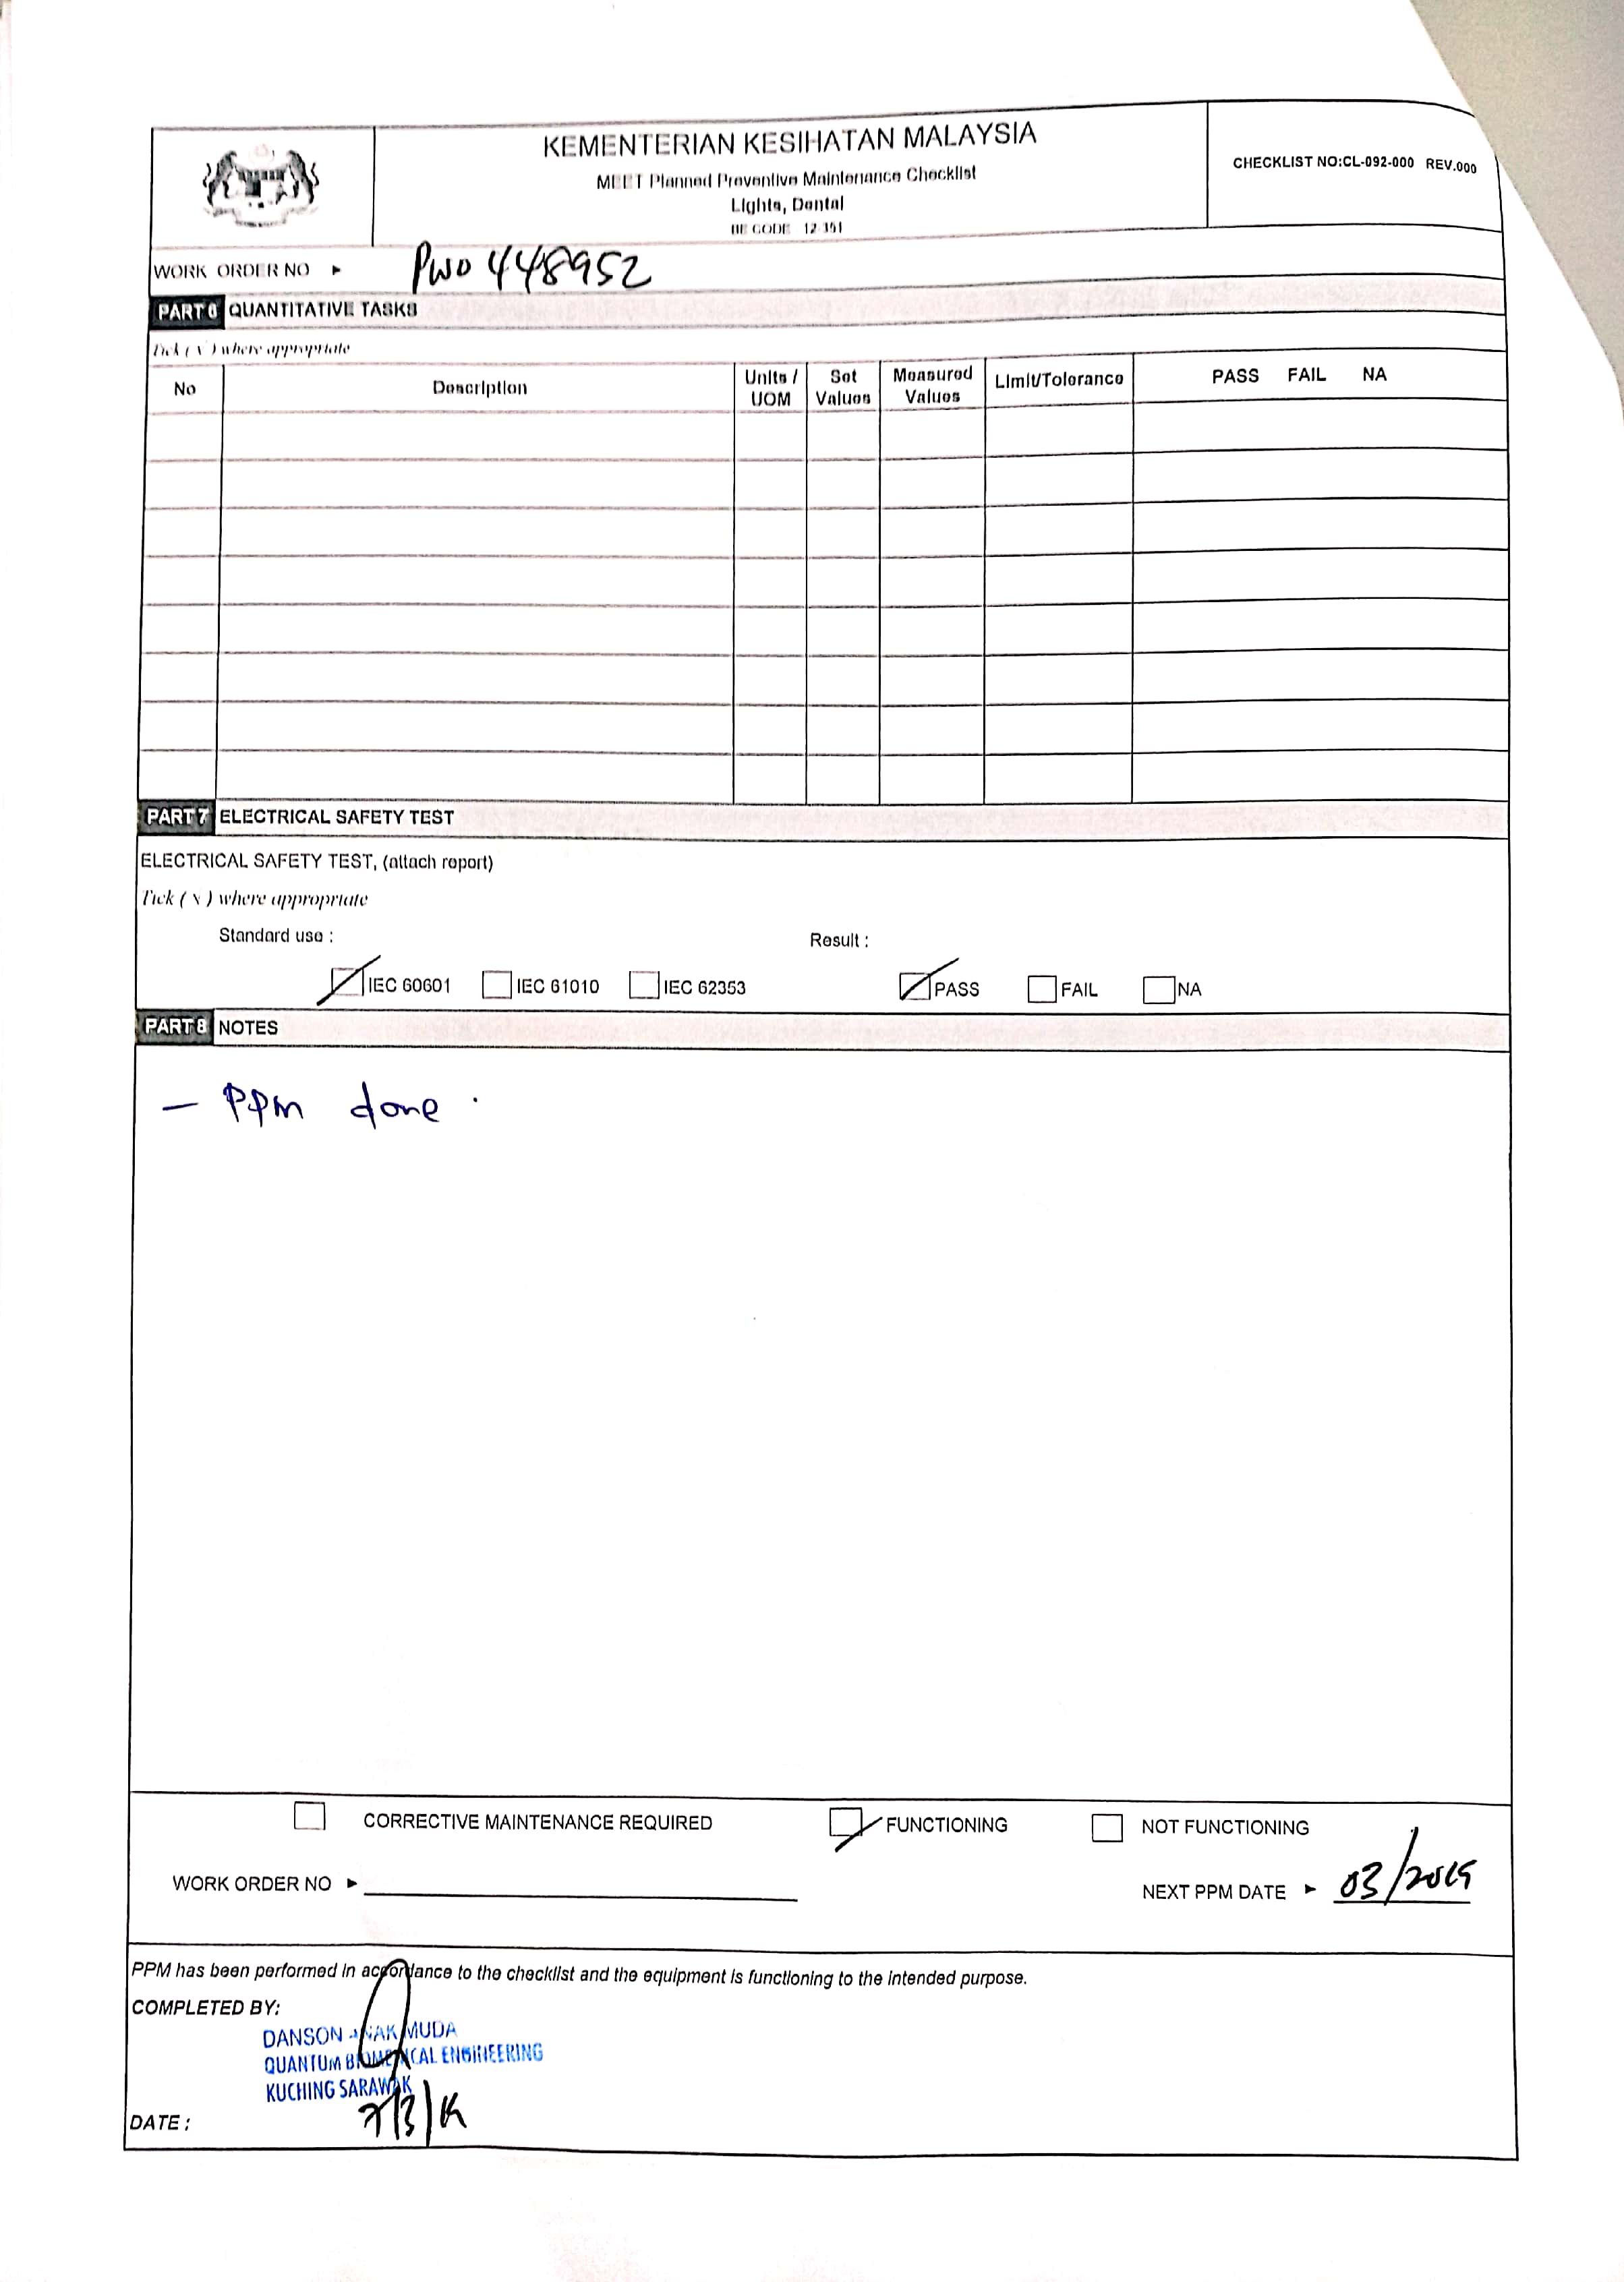 KEMENTERIAN KESIHATAN MALAYSIA
MEET Planned Preventive Maintenance Checklist
Lights, Dental
BE CODE 12-351
CHECKLIST NO:CL-092-000 REV.000
WORK ORDER NO ► PWO 448952
PART 6 QUANTITATIVE TASKS
Tick ( √ ) where appropriate
No Description Units / UOM Set Values Measured Values Limit/Tolerance PASS FAIL NA
PART 7 ELECTRICAL SAFETY TEST
ELECTRICAL SAFETY TEST, (attach report)
Tick ( √ ) where appropriate
Standard use : Result :
IEC 60601 IEC 61010 IEC 62353 PASS FAIL NA
PART 8 NOTES
- PPM done .
CORRECTIVE MAINTENANCE REQUIRED FUNCTIONING NOT FUNCTIONING
WORK ORDER NO ► NEXT PPM DATE ► 03/
PPM has been performed in accordance to the checklist and the equipment is functioning to the intended purpose.
COMPLETED BY:
DANSON ANAK MUDA
QUANTUM BIOMEDICAL ENGINEERING
KUCHING SARAWAK
DATE : 7/3/